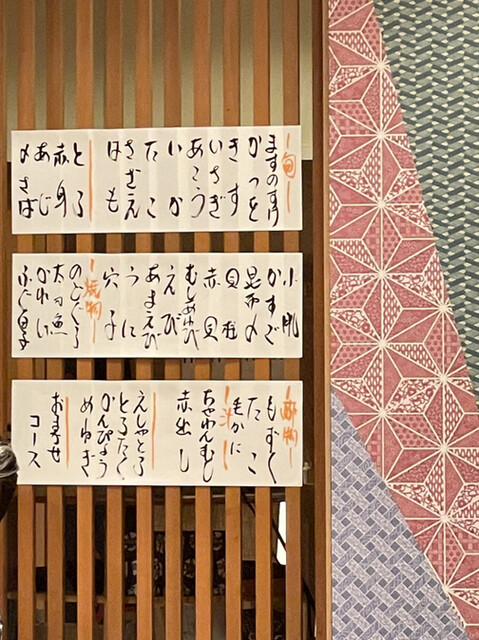 旬
ますのすけ
かつを
きす
いさぎ
あこう
いか
たこ
さざえ
はも
とろ
赤身
あじ
〆さば
小肌
かすご
昆布〆
貝柱
赤貝
むしあわび
えび
あまえび
うに
穴子
焼物
のどぐろ
太刀魚
酢物
もずく
たこ
毛かに
汁
ちゃわんむし
赤出し
えしゃとろ
とろたく
かんぴょう
めねぎ
おまかせ
コース